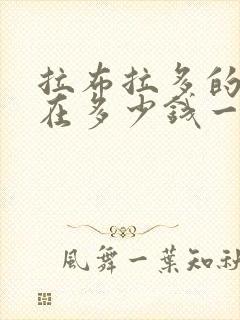 拉布拉多的
在多少钱一
風舞一葉知秋